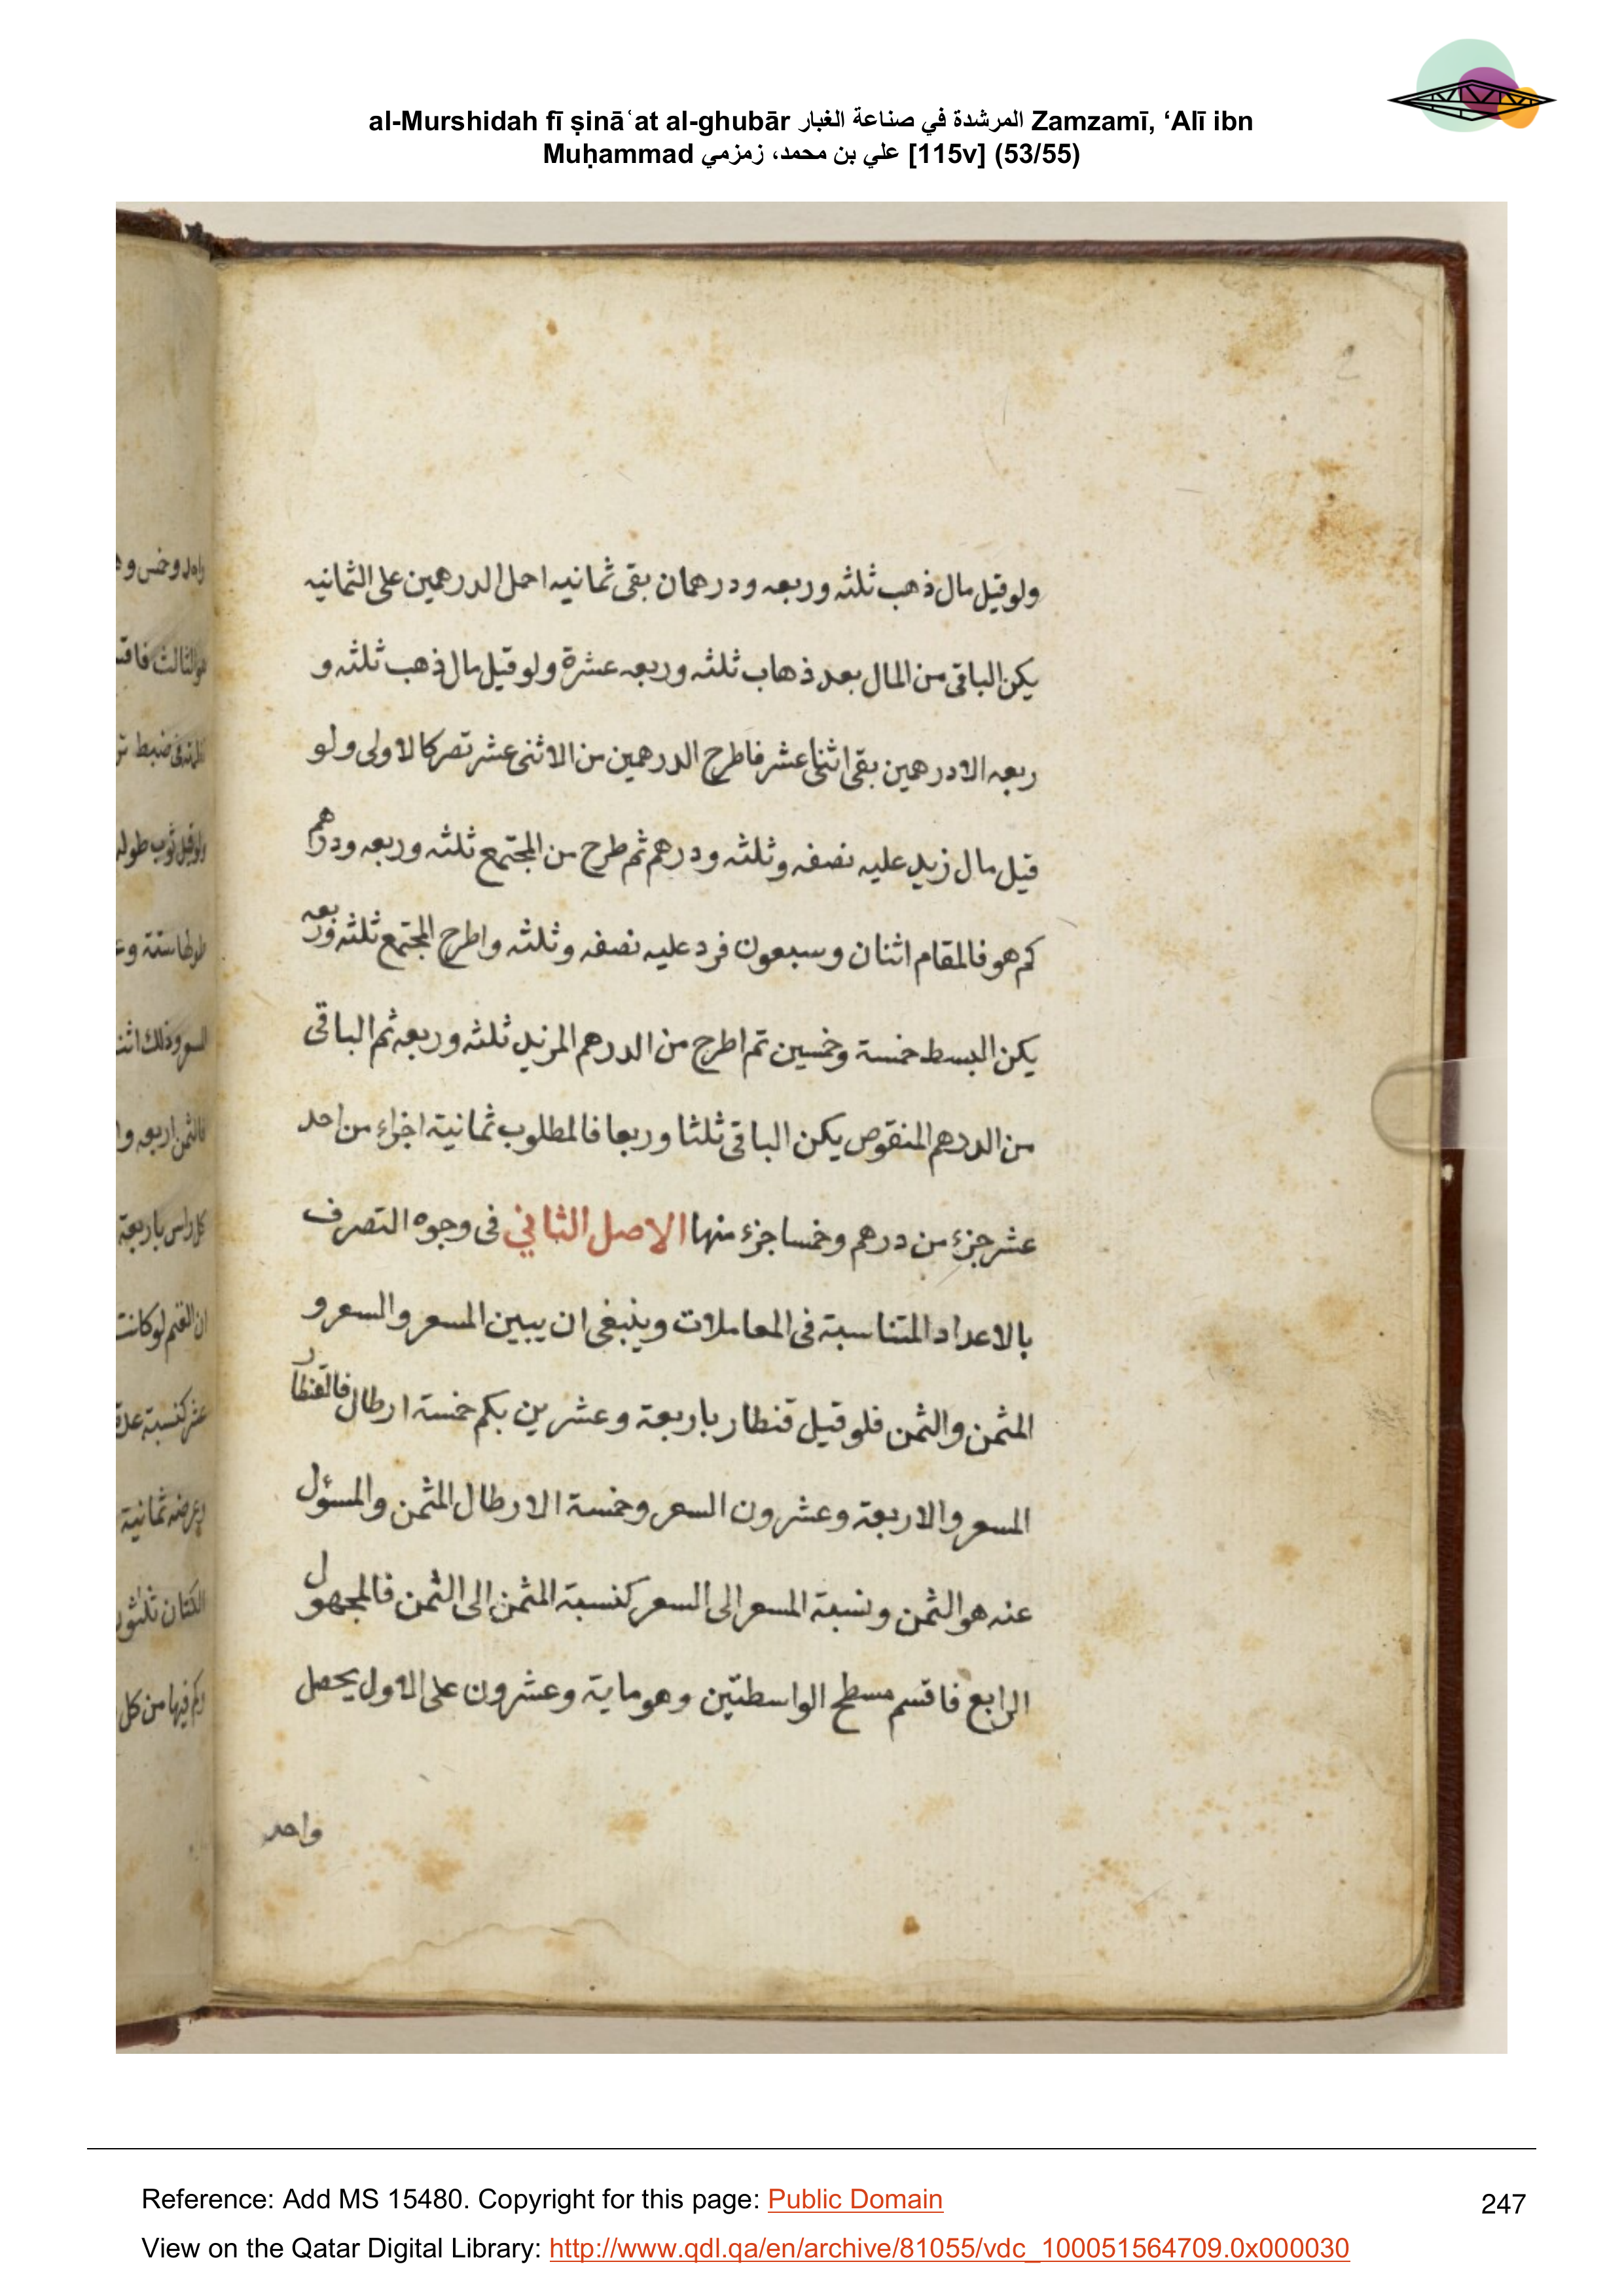 al-Murshidah fī ṣināʿat al-ghubār المرشدة في صناعة الغبار Zamzamī, ‘Alī ibn
Muḥammad علي بن محمد، زمزمي [115v] (53/55)
ولو قيل مال ذهب ثلثه وربعه ودرهمان بقى ثمانيه احمل الدرهمين على الثمانيه
يكن الباقى من المال بعد ذهاب ثلثه وربعه عشرة ولو قيل مال ذهب ثلثه و
ربعه الا درهمين بقى اثنا عشر فاطرح الدرهمين من الاثنى عشر تصر كالاولى ولو
قيل مال زيد عليه نصفه وثلثه ودرهم ثم طرح من المجتمع ثلثه وربعه ودراهم
كم هو فالمقام اثنان وسبعون فرد عليه نصفه وثلثه واطرح المجتمع ثلثه وربعه
يكن البسط خمسة وخمسين تم اطرح من الدرهم المزيد ثلثه وربعه ثم الباقى
من الدرهم المنقوص يكن الباقى ثلثا وربعا فالمطلوب ثمانية اجزاء من احد
عشر جزء من درهم وخمسا جزء منها الاصل الثاني فى وجوه التصرف
بالاعداد المتناسبة فى المعاملات وينبغى ان يبين المسعر والسعر و
المثمن والثمن فلو قيل قنطار باربعة وعشرين بكم خمسة ارطال فالقنطار
المسعر والاربعة وعشرون السعر وخمسة الارطال المثمن والمسؤل
عنه هو الثمن ونسبة المسعر الى السعر كنسبة المثمن الى الثمن فالمجهول
الرابع فاقسم مسطح الواسطتين وهو ماية وعشرون على الاول يحصل
واحد
Reference: Add MS 15480. Copyright for this page: Public Domain
247
View on the Qatar Digital Library: http://www.qdl.qa/en/archive/81055/vdc_100051564709.0x000030